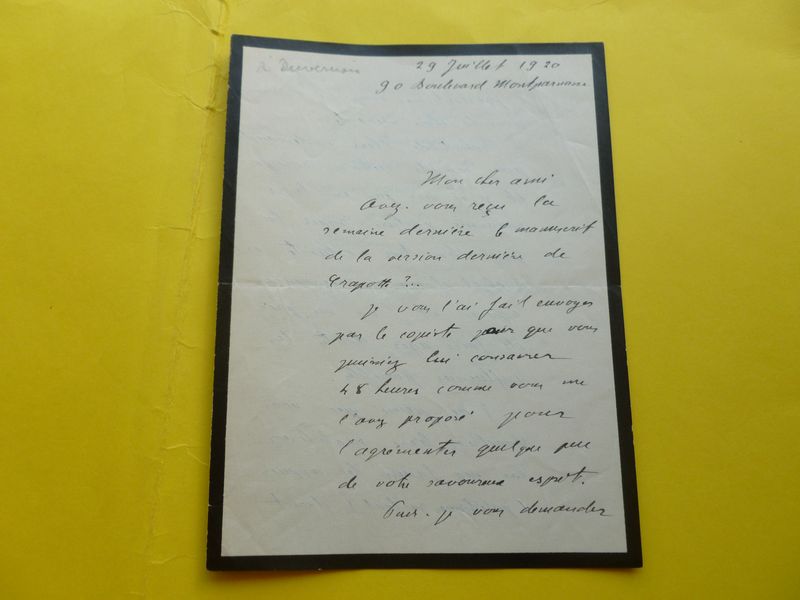 à Duvernois
29 Juillet 1920
90 Boulevard Montparnasse
Mon cher ami
Avez-vous reçu la
semaine dernière le manuscrit
de la version dernière de
?..
Je vous l'ai fait envoyer
par le copiste pour que vous
puissiez lui consacrer
48 heures comme vous me
l'avez proposé pour
l'agrémenter quelque peu
de votre savoureux esprit.
Puis-je vous demander